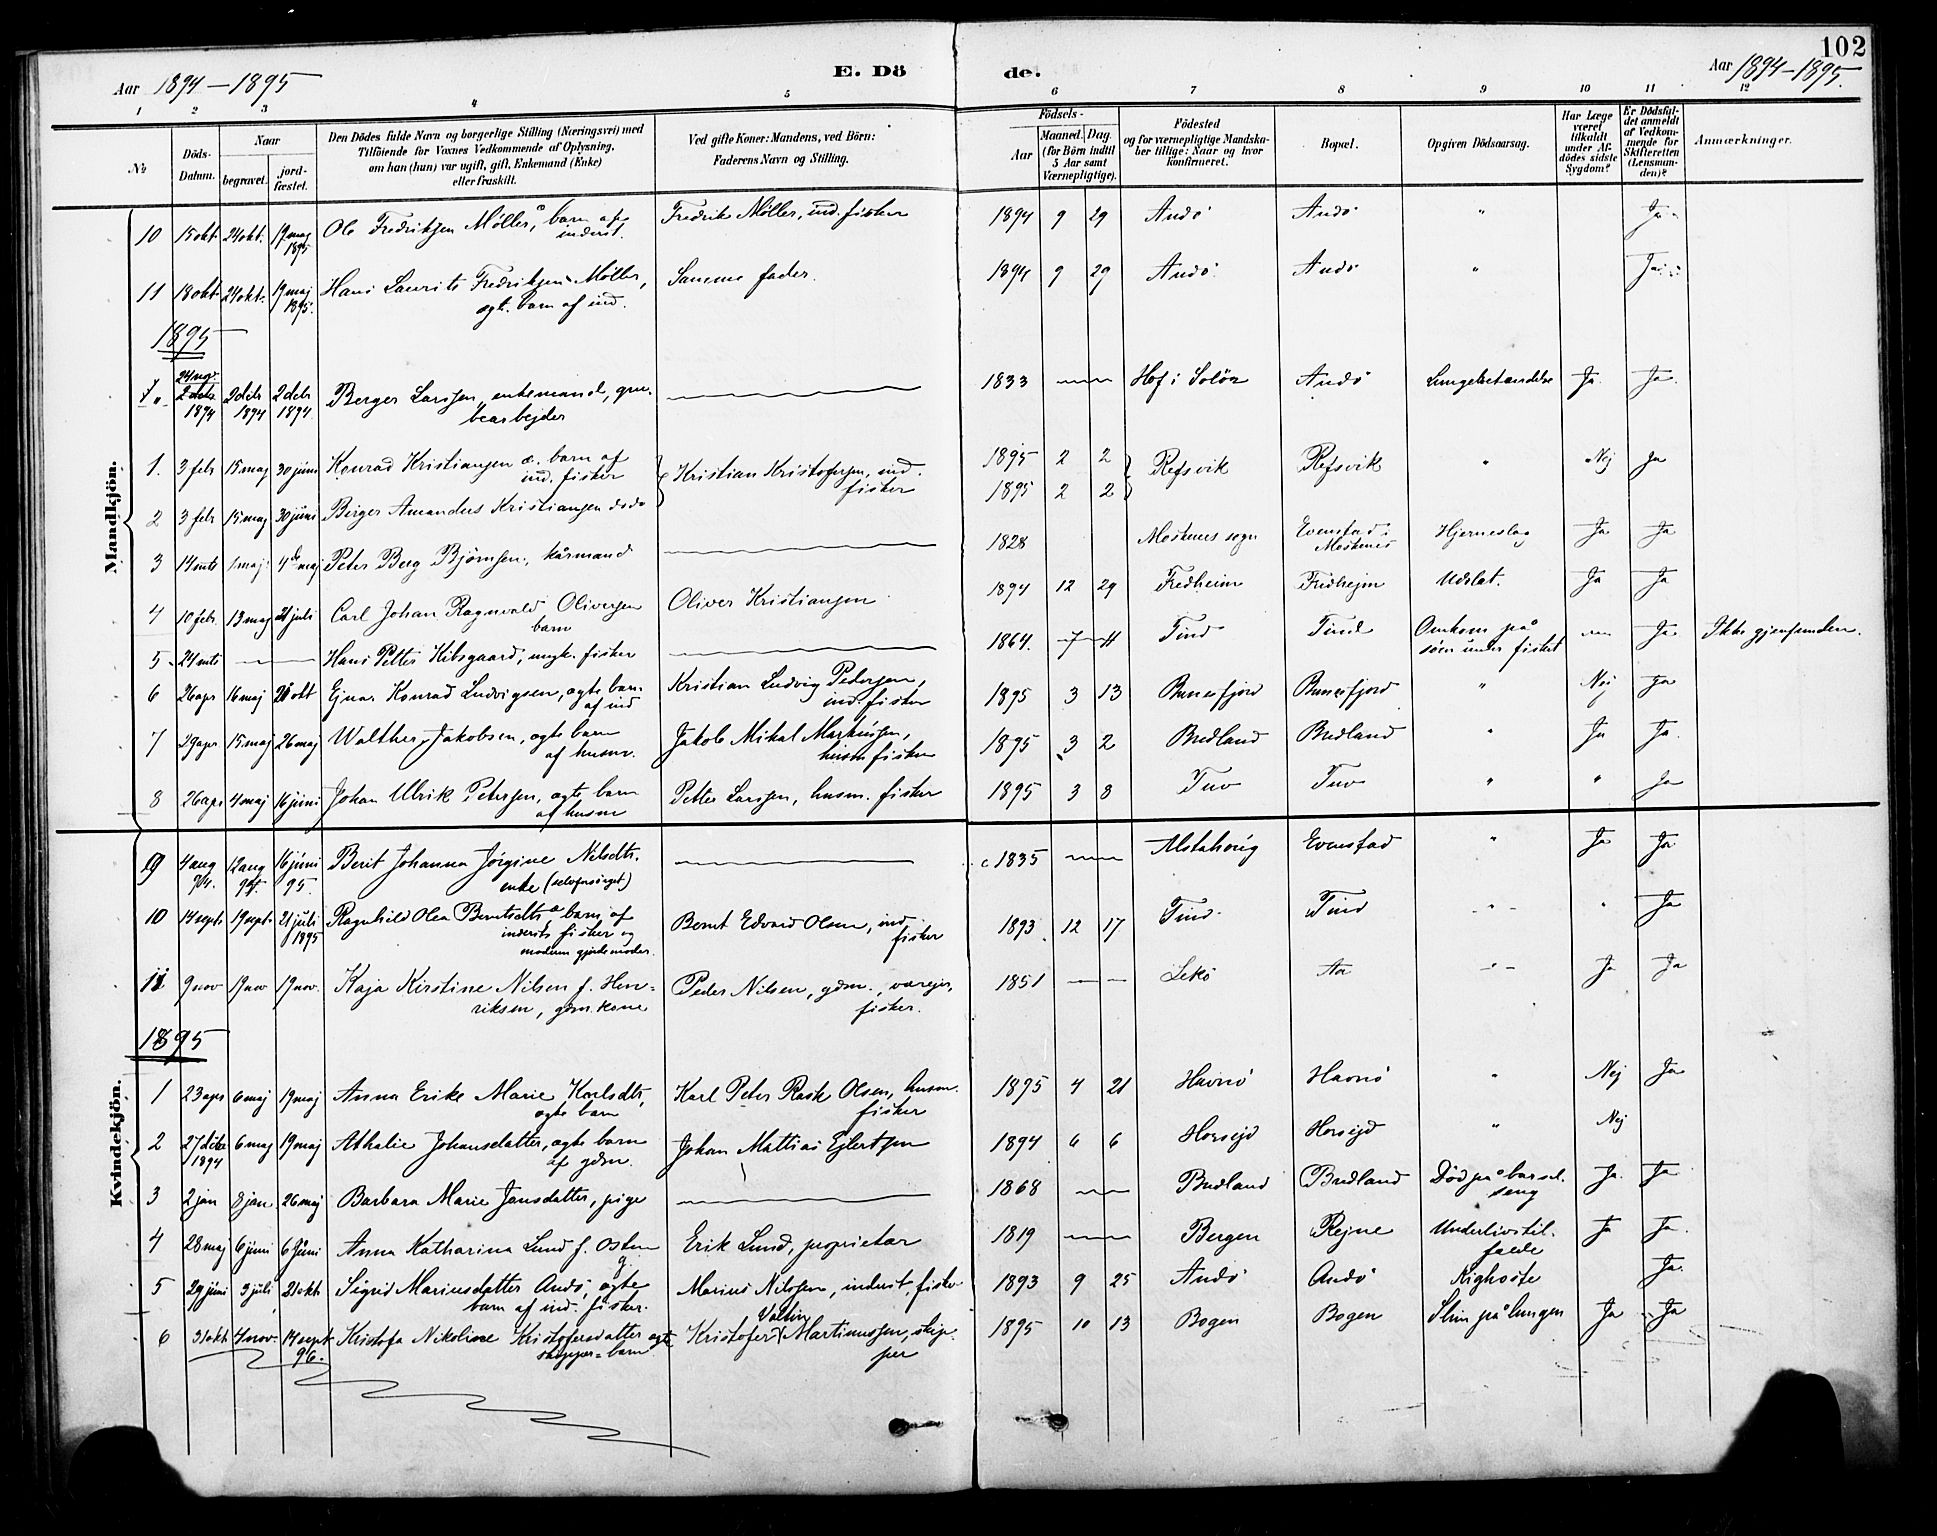 102
Aar 1894 – 1895
E. Dö
de.
Aar 1894 – 1895.
1 2 3 4 5 6 7 8 9 10 11 12
No
Döds-Datum.
Naar
begravet.
jord-fæstet.
Den Dödes fulde Navn og borgerlige Stilling (Næringsvei) med
Tilföiende for Voxnes Vedkommende af Oplysning,
om han (hun) var ugift, gift, Enkemand (Enke)
eller fraskilt.
Ved gifte Koner: Mandens, ved Börn:
Faderens Navn og Stilling.
Födsels-
Aar
Maaned. Dag.
(for Börn indtil
5 Aar samt
Værnepligtige).
Födested
og for værnepligtige Mandska-
ber tillige: Naar og hvor
konfirmeret.
Bopæl.
Opgiven Dödsaarsag.
Har Læge
været
tilkaldt
under Af-
dödes sidste
Sygdom?
Er Dödsfal-
det anmeldt
af Vedkom-
mende for
Skifteretten
(Lensman-
den)?
Anmærkninger.
Mandkjön.
10 15 okt. 24 okt. 19 maj 1895 Ole Fredriksen Møller, barn af inderst. Fredrik Møller, ind. fisker 1894 9 29 Andö Andö " Ja
11 18 okt. 24 okt. 19 maj 1895. Hans Laurits Fredriksen Møller, ægt. barn af ind. Samme fader. 1894 9 29 Andö Andö " Ja
1895
24 nov. 2 debr 1894 2 debr 1894 2 debr 1894 Berger Larsen, enkemand, grubearbejder 1833 Hof i Solør Andö Lungebetændelse Ja Ja
1. 3 febr 15 maj 30 juni Konrad Kristiansen æ. barn af ind. fisker Kristian Kristofersen, ind. fisker 1895 2 2 Refsvik Refsvik " Nej Ja
2 3 febr 15 maj 30 juni Berger Amandus Kristiansen do do 1895 2 2
3 14 mts 1 maj 4 maj Peter Berg Bjørnsen, kårmand 1828 Moskenes sogn Evenstad i Moskenes Hjerneslag Ja Ja
4 10 febr. 13 maj 21 juli Carl Johan Ragnvald Oliversen barn Oliver Kristiansen 1894 12 29 Fredheim Fredhejm Udslæt. Ja Ja
5 24 mts Hans Petter Kibsgaard, ungk. fisker 1864. 7 Tind Tind Omkom på søen under fiskeri Ja Ikke gjenfunden.
6 26 apr 16 maj 20 okt Ejnar Konrad Ludvigsen, ægte barn af ind Kristian Ludvig Pedersen, ind. fisker 1895 3 13 Bunesfjord Bunesfjord " Nej Ja
7 29 apr 15 maj 26 maj Walther Jakobsen, ægte barn af husm. Jakob Mikal Markussen, husm fisker 1895 3 2 Bredland Bredland " Ja Ja
8 26 apr 4 maj 16 juni Johan Ulrik Petersen, ægte barn af husm Petter Larsen, husm. fisker 1895 3 8 Tuv Tuv " " Ja
Kvindekjön.
9 4 aug 94. 12 aug 94. 16 juni 95. Berit Johanna Jørgine Nilsdtr. enke (selvforsørget) c 1835 Alstahoug Evenstad " Ja Ja
10 14 sept. 19 sept. 21 juli 1895 Ragnhild Olea Berntsdtr æ barn af inderst fisker og moderen gjordemoder. Bernt Edvard Olsen, ind fisker 1893 12 17 Tind Tind " " Ja
11 9 nov 19 nov 19 nov. Kaja Kirstine Nilsen f. Henriksen, gdm. kone Peder Nilsen, gdm., værejer, fisker. 1851 Lekö Aa " Ja Ja
1895
1 23 apr 6 maj 19 maj Anna Erike Marie Karlsdtr, ægte barn Karl Peter Rask Olsen, husm. fisker 1895 4 21 Havnö Havnö " Nej Ja
2 27 debr 1894 6 maj 19 maj Athalie Johansdatter, ægte barn af gdm. Johan Mattias Ejlertsen 1894 6 6 Horsejd Horsejd " Nej
3 2 jan 8 jan 26 maj Barbara Marie Jansdatter, pige 1868 Bredland Bredland Död på barselseng Ja Ja
4 28 maj 6 juni 6 juni Anna Katharina Lund f. Osten Erik Lund, proprietær 1819 Bergen Rejne Underlivstilfælde Ja Ja
5 29 juni 3 juli 21 okt Sigrid Mariusdatter Andö, ægte barn af ind. fisker. Marius Nilssen, inderst, fisker 1893 9 25 Andö Andö Kighoste Ja
6 31 okt 4 nov. 14 sept 96. Kristofa Nikoline Kristofersdatter ægte skipper = barn Kristofer Valtin Martinussen, skipper 1895 10 13 Bogen Bogen Slim på lungen Ja Ja